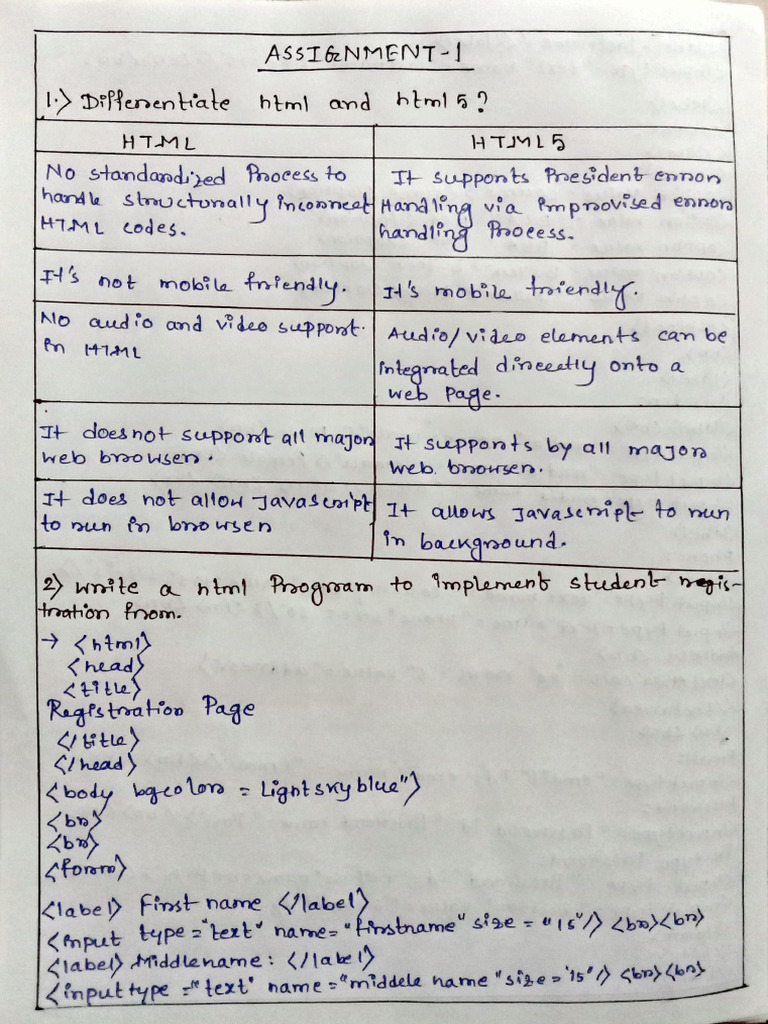 ASSIGNMENT-1
1.> Differentiate html and html5?
HTML
HTML5
No standardized Process to
handle structurally incorrect
HTML codes.
It supports President error
Handling via improvised error
handling Process.
It's not mobile friendly.
It's mobile friendly.
No audio and video support.
in HTML
Audio/video elements can be
integrated direectly onto a
web page.
It doesnot support all major
web browser.
It supports by all major
web browser.
It does not allow Javascript
to run in browser
It allows Javascript to run
in background.
2) write a html Program to implement student regis-
tration from.
→ <html>
<head>
<title>
Registration Page
</title>
</head>
<body bgcolor = Lightskyblue">
<br>
<br>
<form>
<label> First name </label>
<input type="text" name="firstname" size = "15"/> <br><br>
<label> Middlename: </label>
<input type ="text" name ="middele name "size = '15"/> <br><br>